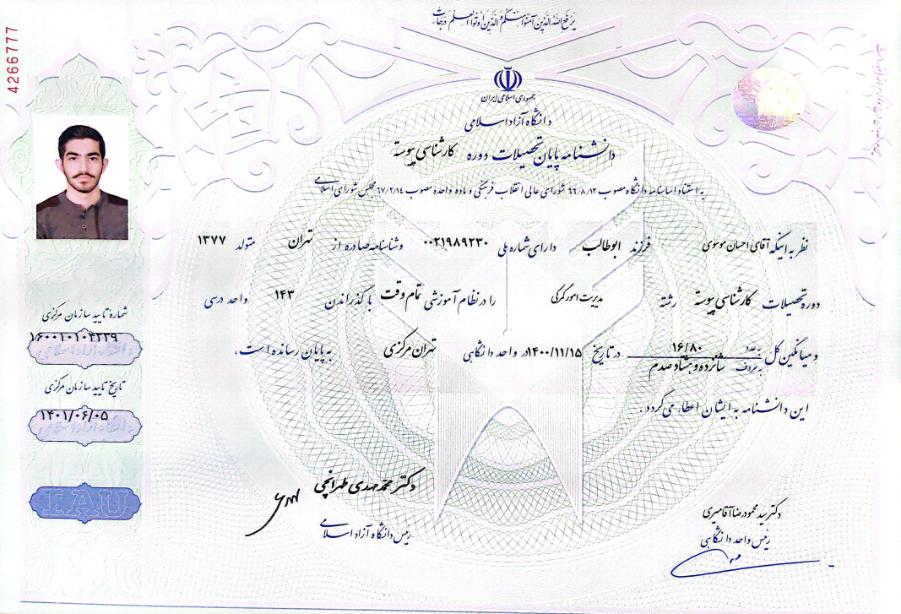 یرفع الله الذین آمنوا منکم والذین اوتوا العلم درجات
4266777
جمهوری اسلامی ایران
دانشگاه آزاد اسلامی
دانشنامه پایان تحصیلات دوره کارشناسی پیوسته
به استناد اساسنامه دانشگاه مصوب ۶۶/۸/۱۲ شورای عالی انقلاب فرهنگی و ماده واحده مصوب ۶۷/۲/۱۴ مجلس شورای اسلامی
نظر به اینکه آقای احسان موسوی فرزند ابوطالب دارای شماره ملی ۰۰۲۱۹۸۹۲۳۰ و شناسنامه صادره از تهران متولد ۱۳۷۷
دوره تحصیلات کارشناسی پیوسته رشته مدیریت امور گمرکی را در نظام آموزشی تمام وقت با گذراندن ۱۴۳ واحد درسی
و میانگین کل به عدد ۱۶/۸۰ به حروف شانزده و هشتاد صدم در تاریخ ۱۴۰۰/۱۱/۱۵ در واحد دانشگاهی تهران مرکزی به پایان رسانده است.
این دانشنامه به ایشان اعطا می گردد.
شماره تایید سازمان مرکزی
۱۶۰۰۱۰۱۰۴۲۳۹
تاریخ تایید سازمان مرکزی
۱۴۰۱/۰۶/۰۵
IAU
دکتر محمد مهدی طهرانچی
رئیس دانشگاه آزاد اسلامی
دکتر سید محمودرضا آقامیری
رئیس واحد دانشگاهی